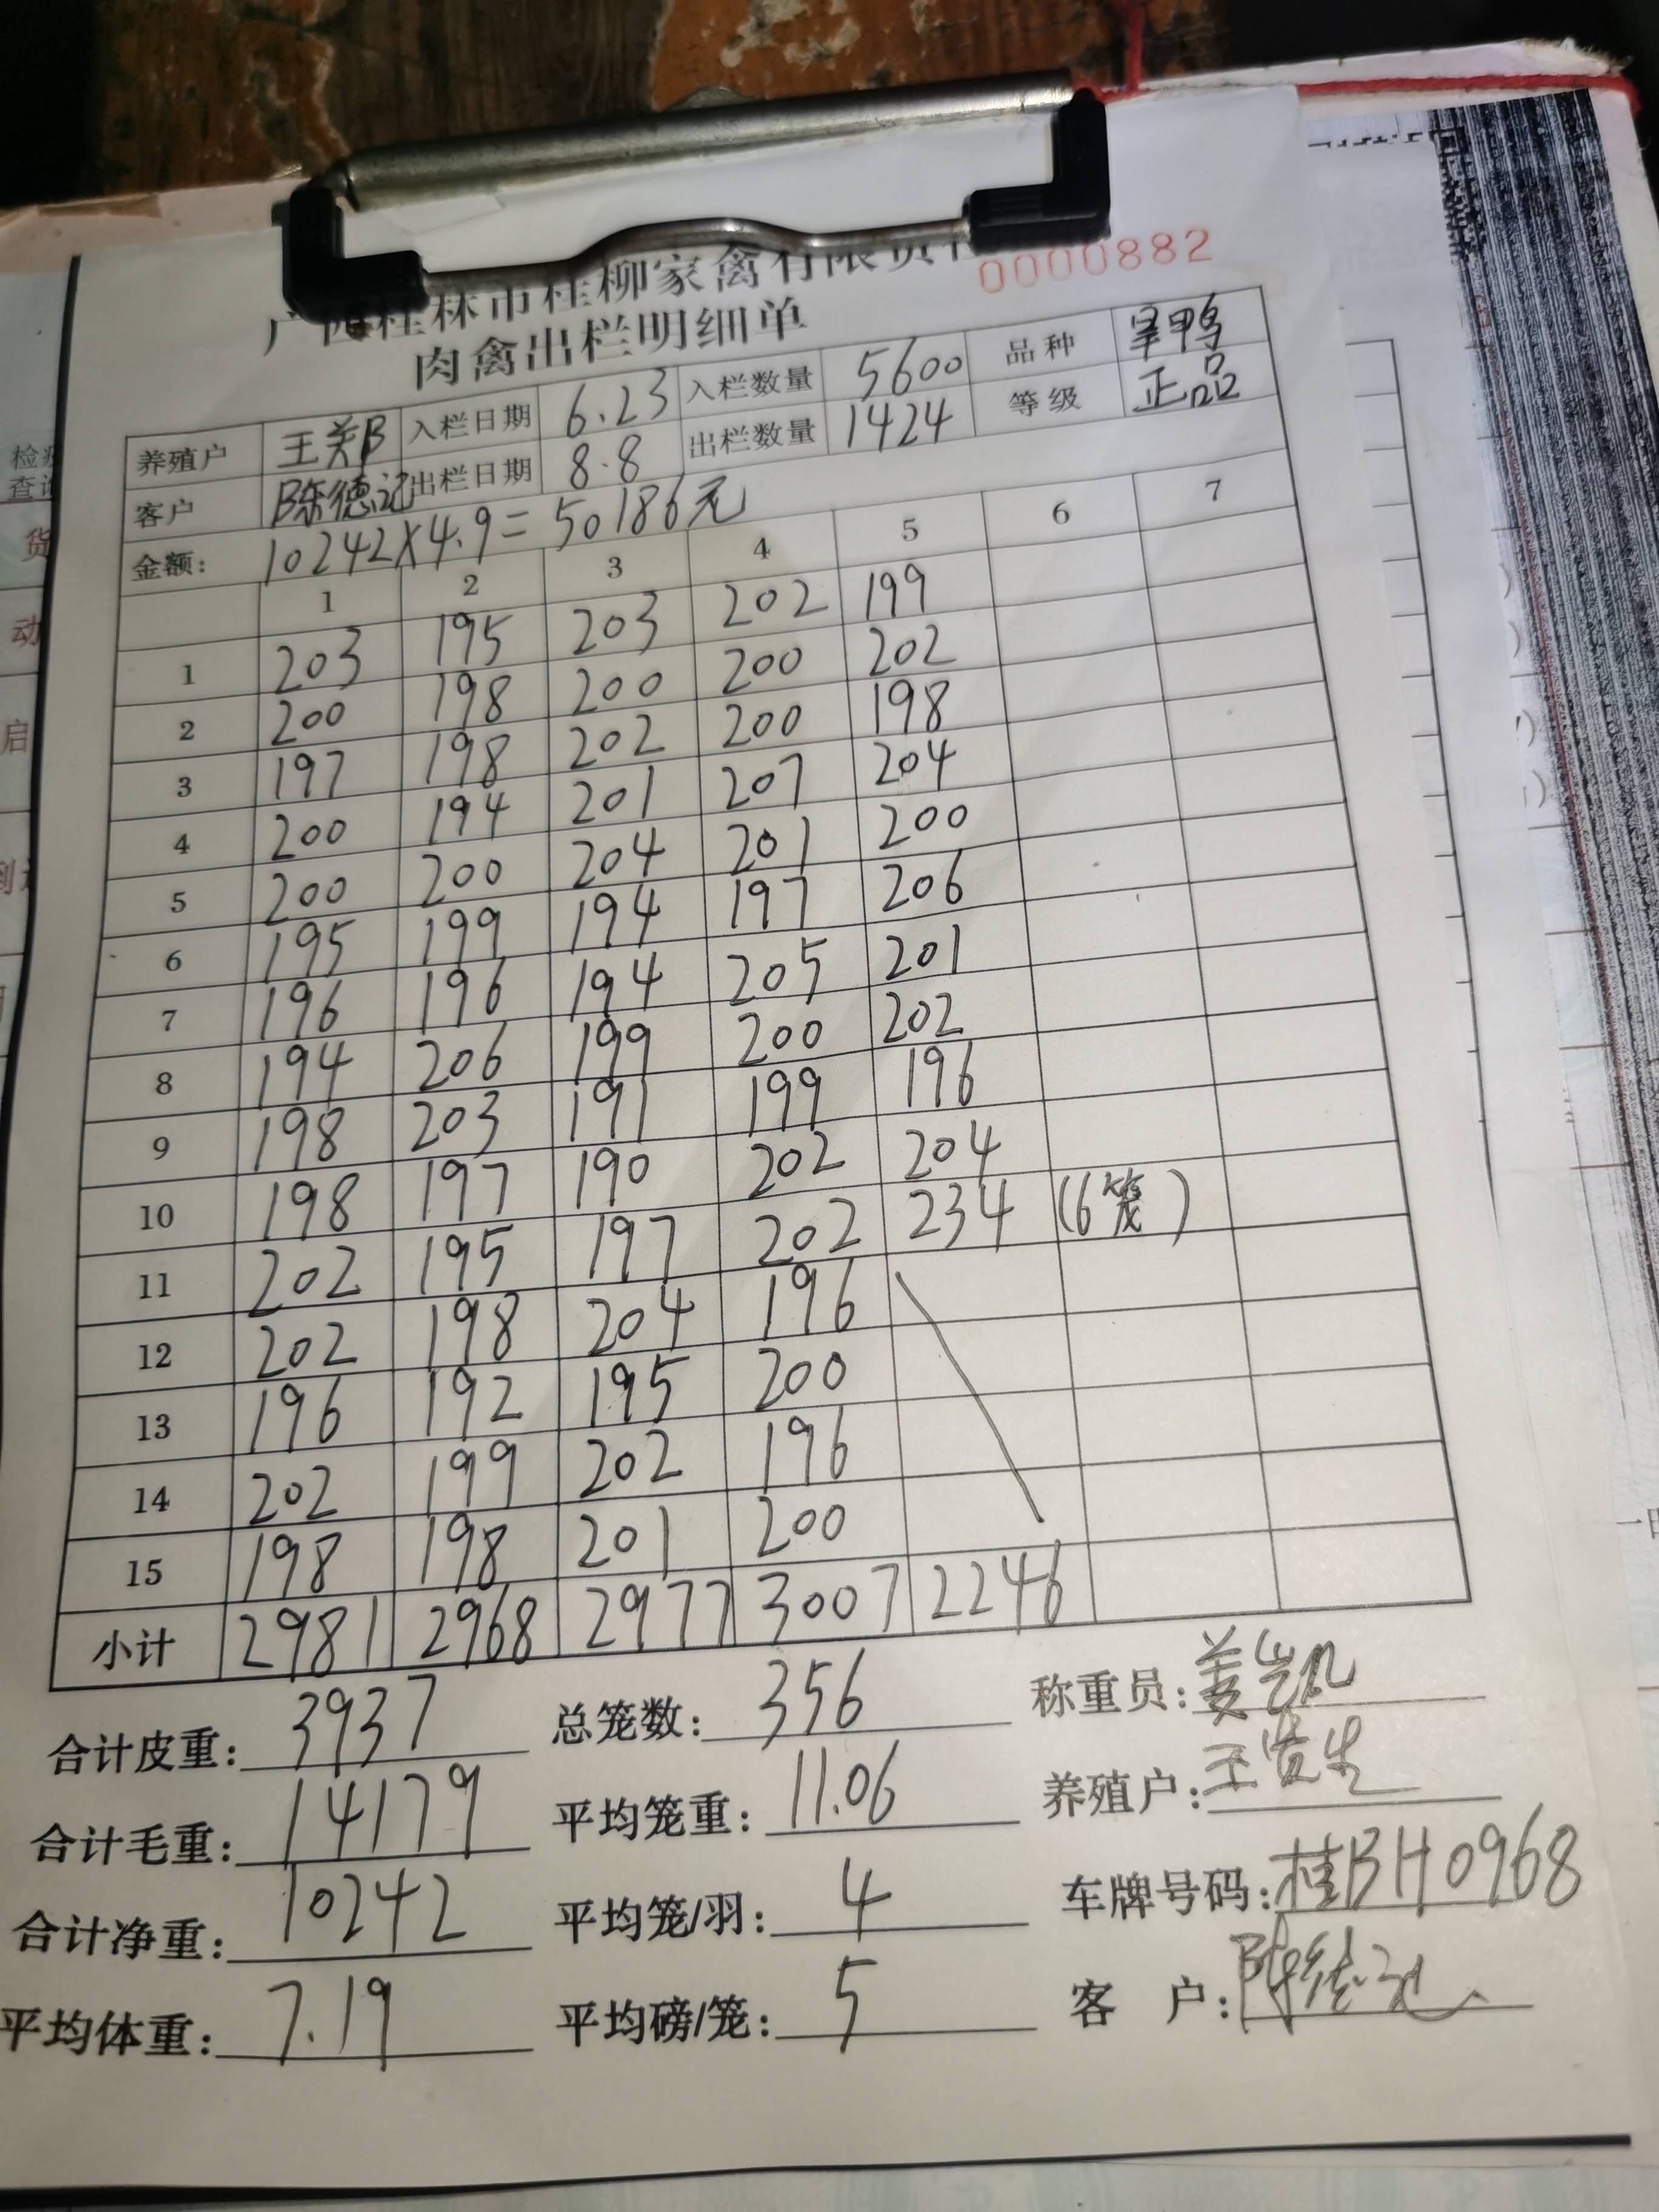 广西桂林市桂柳家禽有限责任
0000882
肉禽出栏明细单
养殖户 王关B 入栏日期 6.23 入栏数量 5600 品种 旱鸭
客户 陈德记 出栏日期 8.8 出栏数量 1424 等级 正品
金额: 10242X4.9=50186元
1 2 3 4 5 6 7
1 203 195 203 202 199
2 200 198 200 200 202
3 197 198 202 200 198
4 200 194 201 207 204
5 200 200 204 201 200
6 195 199 194 197 206
7 196 196 194 205 201
8 194 206 199 200 202
9 198 203 191 199 196
10 198 197 190 202 204
11 202 195 197 202 234 (6笼)
12 202 198 204 196
13 196 192 195 200
14 202 199 202 196
15 198 198 201 200
小计 2981 2968 2977 3007 2246
合计皮重: 3937 总笼数: 356 称重员:
合计毛重: 14179 平均笼重: 11.06 养殖户:
合计净重: 10242 平均笼/羽: 4 车牌号码: 桂BH0968
平均体重: 7.19 平均磅/笼: 5 客户: 陈德记